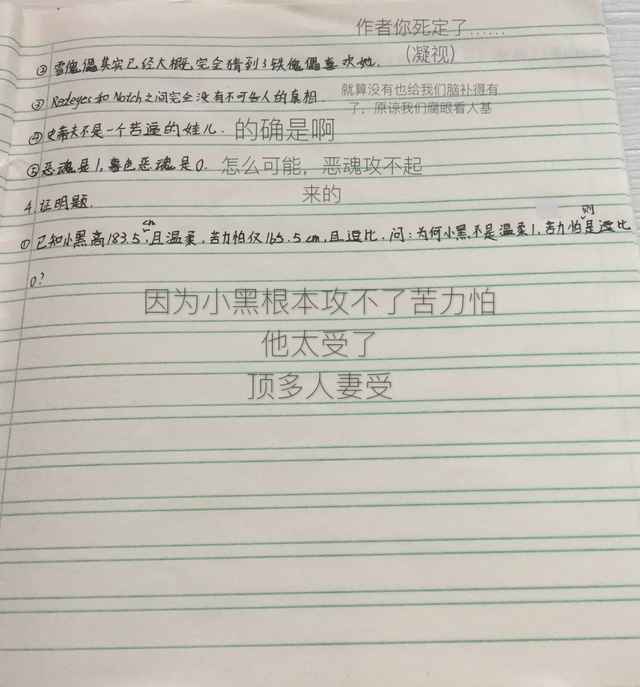 作者你死定了……
②雪傀儡其实已经大概完全猜到了铁傀儡喜欢她.
(凝视)
③Redeyes和Notch之间完全没有不可告人的真相.
就算没有也给我们脑补得有
了，原谅我们腐眼看人基
④史蒂夫不是一个苦逼的娃儿.
的确是啊
⑤恶魂是1,暮色恶魂是0.
怎么可能，恶魂攻不起
来的
4.证明题.
①已知小黑高183.5cm,且温柔,苦力怕仅165.5cm,且逗比.问:为何小黑不是温柔1,苦力怕则是逗比
0?
因为小黑根本攻不了苦力怕
他太受了
顶多人妻受